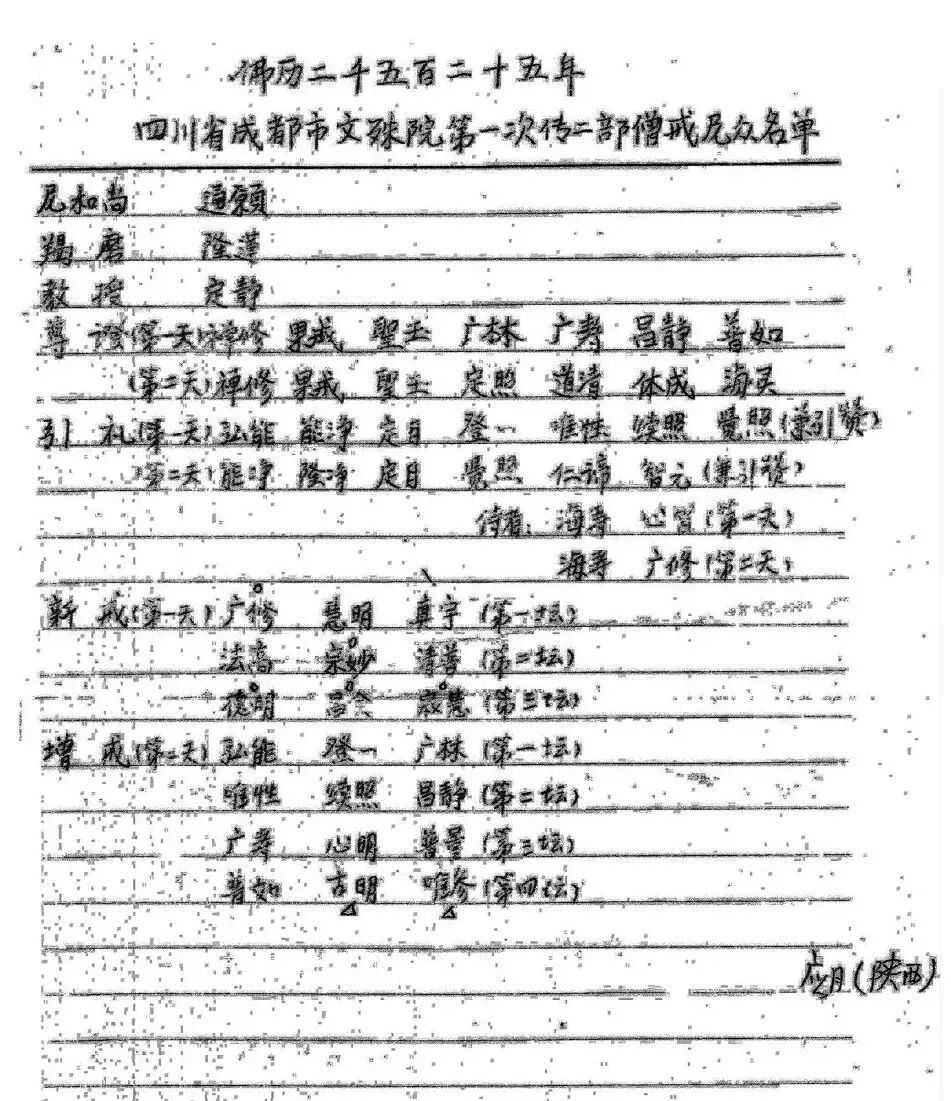 佛历二千五百二十五年
四川省成都市文殊院第一次传二部僧戒尼众名单
尼和尚 通願
羯磨 隆莲
教授 定静
尊證(第一天)禅修 果戒 聖玉 广林 广寿 昌静 普如
(第二天)禅修 果戒 聖玉 定照 道清 体成 海灵
引礼(第一天)弘能 能净 定目 登一 唯性 续照 覺照(兼引赞)
(第二天)能净 隆净 定目 覺照 仁諦 智元(兼引赞)
侍者:海寿 心(第一天)
海寿 广修(第二天)
新戒(第一天)广修 慧明 真宇(第一坛)
法高 宗妙 清善(第二坛)
德明 寂慧(第三坛)
增戒(第二天)弘能 登一 广林(第一坛)
唯性 续照 昌静(第二坛)
广寿 心明 普量(第三坛)
普如 古明 唯参(第四坛)
应月(陕西)